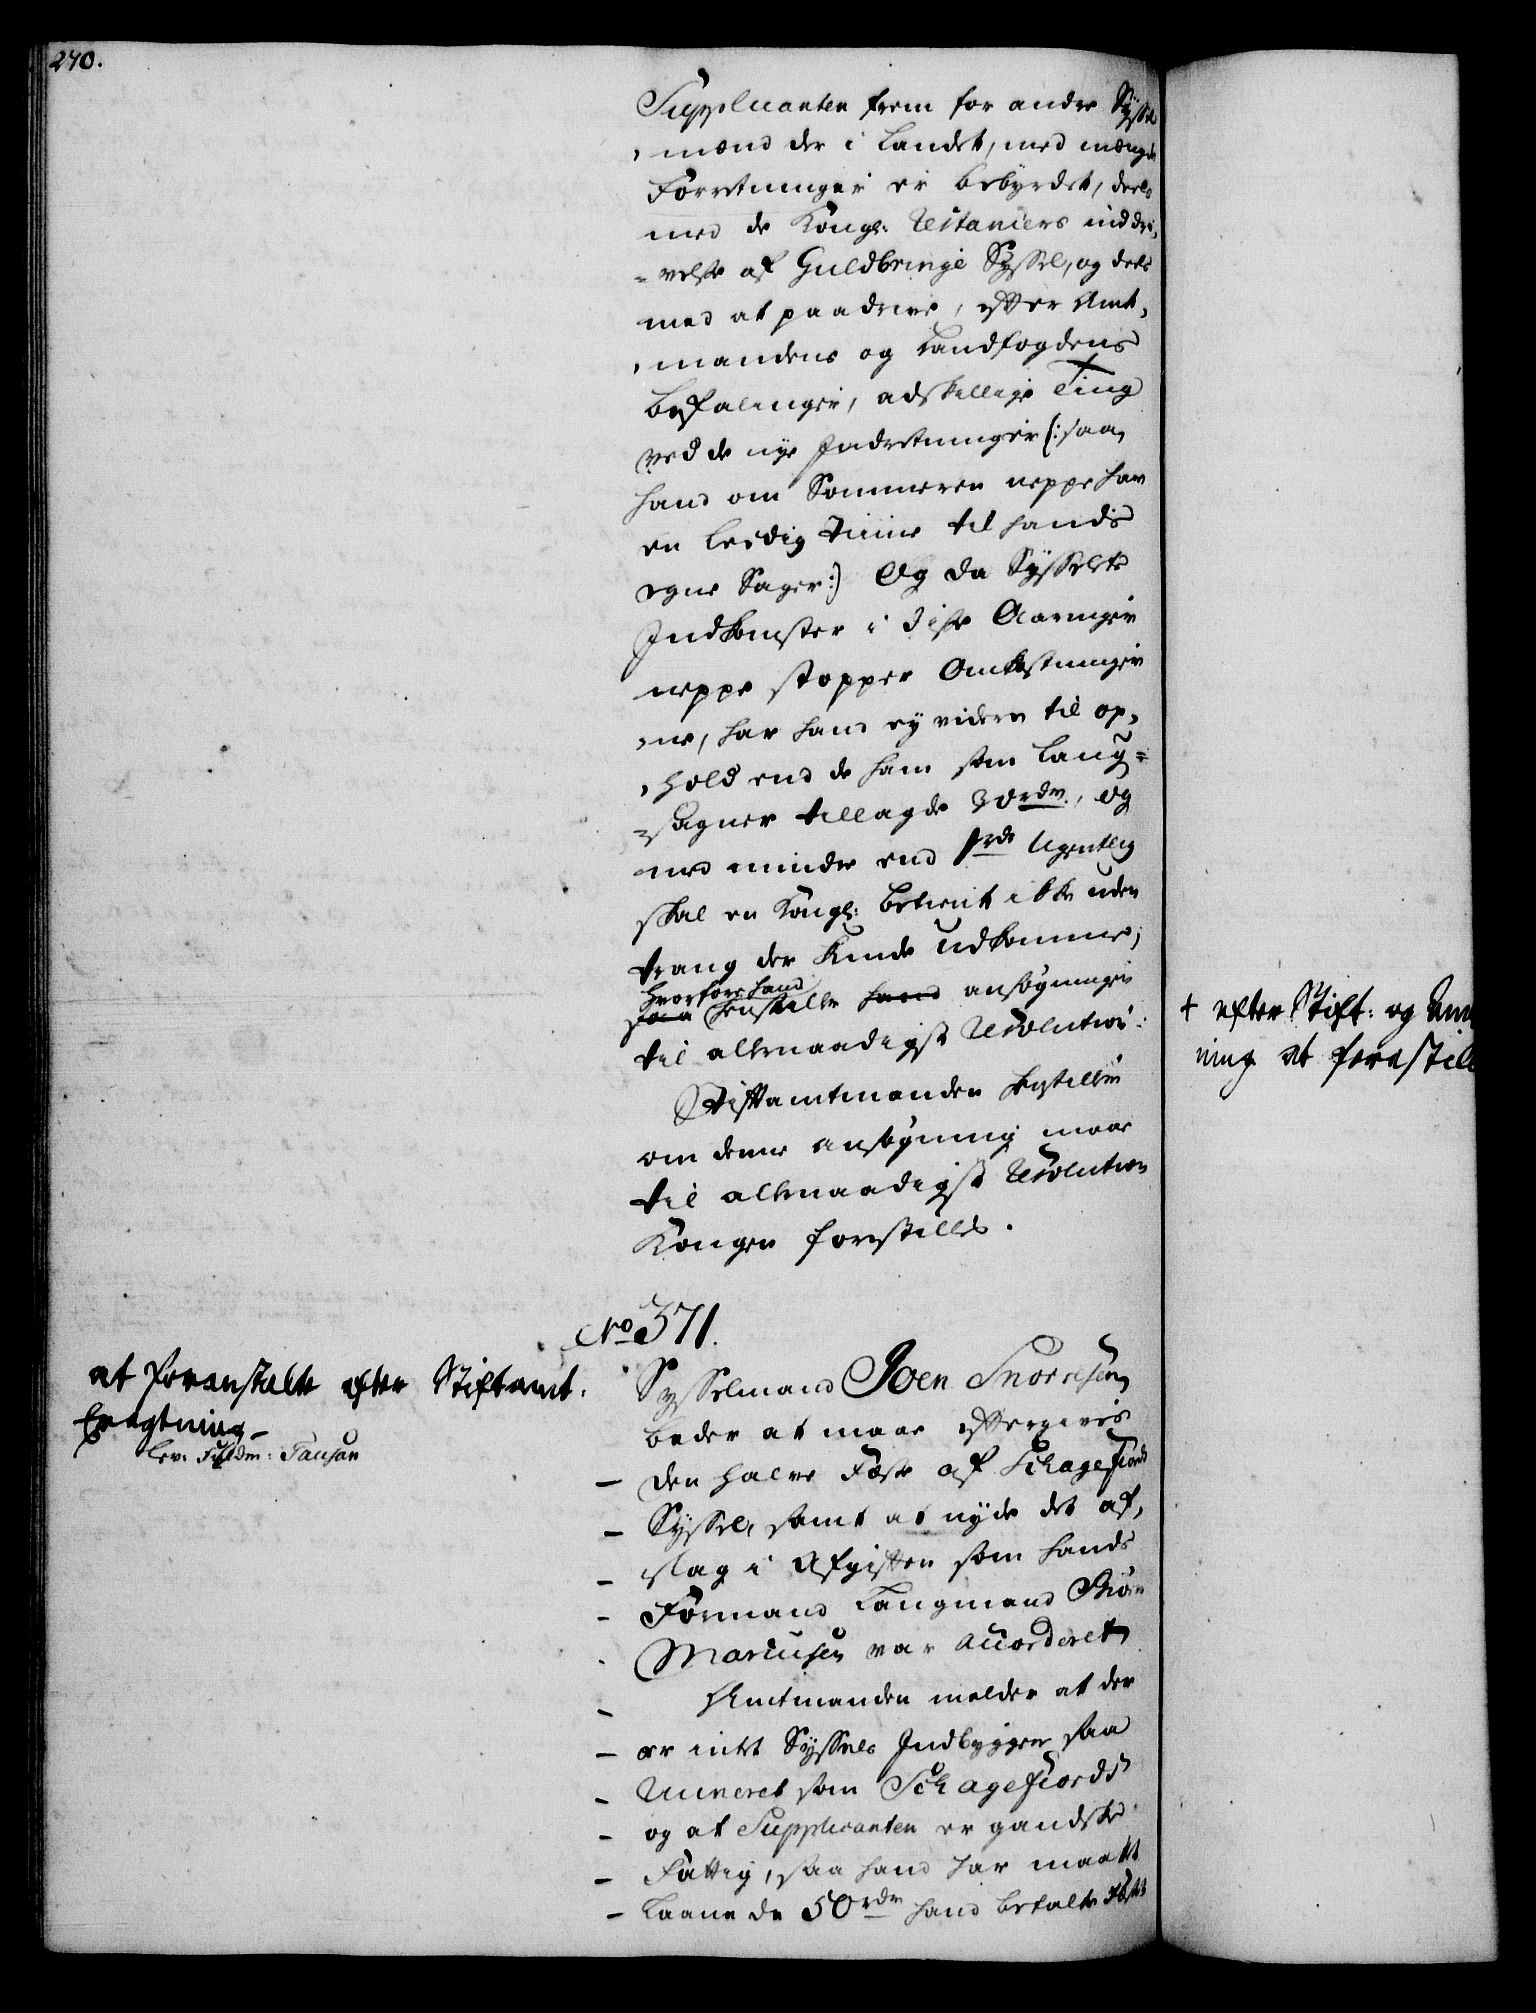 270.
Supplicanten frem for andre Syssel
mænd der i Landet, med mængde
Forretninger er bebyrdet, deels
med de Kongl: Restanciers inddri,
=velse af Guldbringe Syssel, og deels
med at paadrive, efter Amt,
mandens og Landfogdens
Befalinger, adskellige Ting
ved de nye Indretninger (: saa
hand om Sommeren neppe har
en leedig Time til hands
egne Sager:) Og da Sysselets
Indkomster i disse Aaringer
neppe stopper Omkostninger
ne, har hand ey videre til op,
hold end de ham som Laug=
=sagner tillagde 30 rdr., og
med mindre end 1 rdr Ugentlig
skal en Kongl: betient ikke uden
trang der kunde udkomme,
hvorfore hand
saa henstiller hand ansøgningen
til allernaadigst Resolution:
Stiftamtmanden bestiller
om denne ansøgning maae
til allernaadigst Resolution
Kongen forestilles.
+ efter Stift: og Am
ning at forestill
No 371.
at foranstalte efter Stiftamt:
Eragtning
lev: Fuldm: Tausan
Sysselmand Joen Snorresen
beder at maae eftergives
den halve Fæste af Schagefiords
Syssel, samt at nyde det af,
slag i Afgiften som hands
Formand Laugmand Biørn
Marcusen var accorderet
Amtmanden melder at der
er intet Syssels Indbyggere saa
Ruineret som Schagefiords
og at Supplicanten er gandske
Fattig, saa hand har maatt
Laane de 50 rdr hand betalte